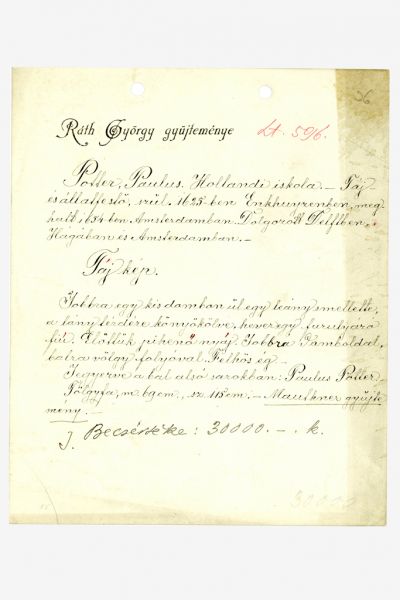 36
Ráth György gyűjteménye Lt. 596.
Potter, Paulus. Hollandi iskola. – Táj
és állatfestő, szül. 1625-ben Enkhuyzenben, meg-
halt 1654-ben Amsterdamban. Dolgozott Delftben,
Hágában és Amsterdamban. –
Tájkép.
Jobbra egy kis dombon ül egy leány s mellette,
a lány térdére könyökölve, hever egy furulyázó
fiú. Előttük pihenő nyáj. Jobbra lomboldal,
balra völgy folyóval. Felhős ég. –
Jegyezve a bal alsó sarokban: Paulus Potter. –
Tölgyfa, m. 69 cm., sz. 115 cm. – Mauthner gyűjte-
mény. –
J. Becsértéke: 30000. – . k.
30000